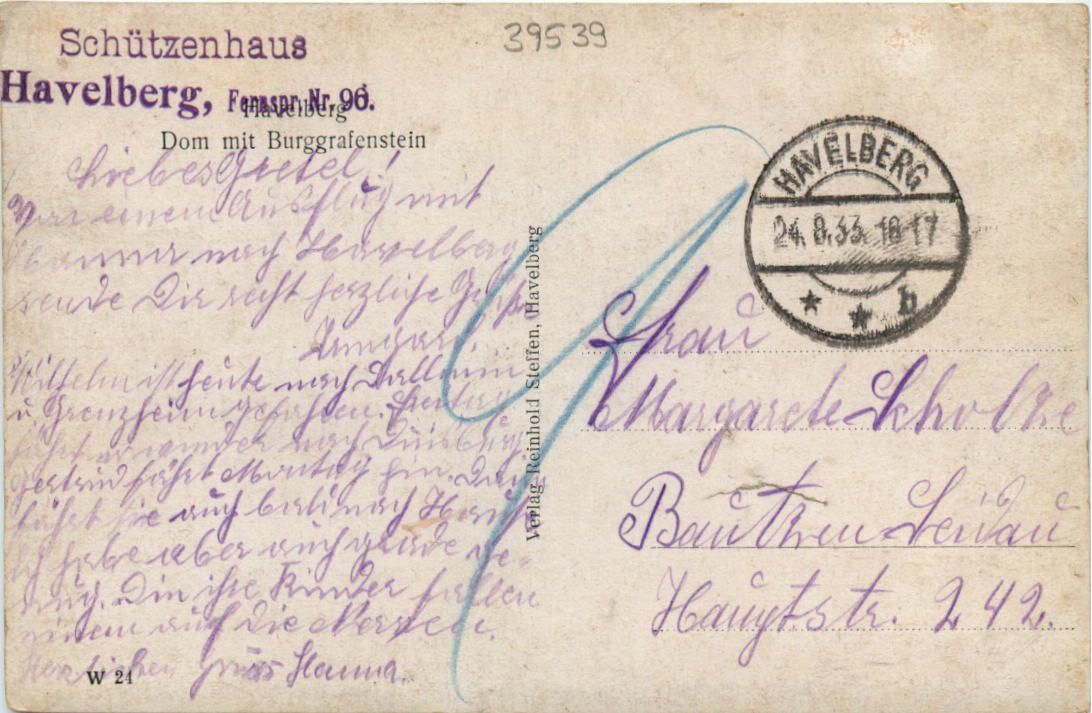 Schützenhaus
Havelberg, Fernspr. Nr. 96.
39539
Havelberg
Dom mit Burggrafenstein
Liebes Gretel!
Von einem Ausflug mit
Hanna nach Havelberg
sende Dir recht herzliche Grüße
Irmgard.
Wilhelm ist heute nach
u. gefahren. Freitag
fährt er wieder nach Duisburg
Gertrud fährt Montag hin. Dann
fährt sie auch bald nach
Ich habe aber auch grade ge-
nug. Din ihre Kinder fallen
einem auf die Nerven.
Herzlichen Gruss Hanna.
W 24
Verlag Reinhold Steffen, Havelberg
HAVELBERG
24.8.33.16-17
* * b
Frau
Margarete Scholze
Bautzen-Seidau
Hauptstr. 242.